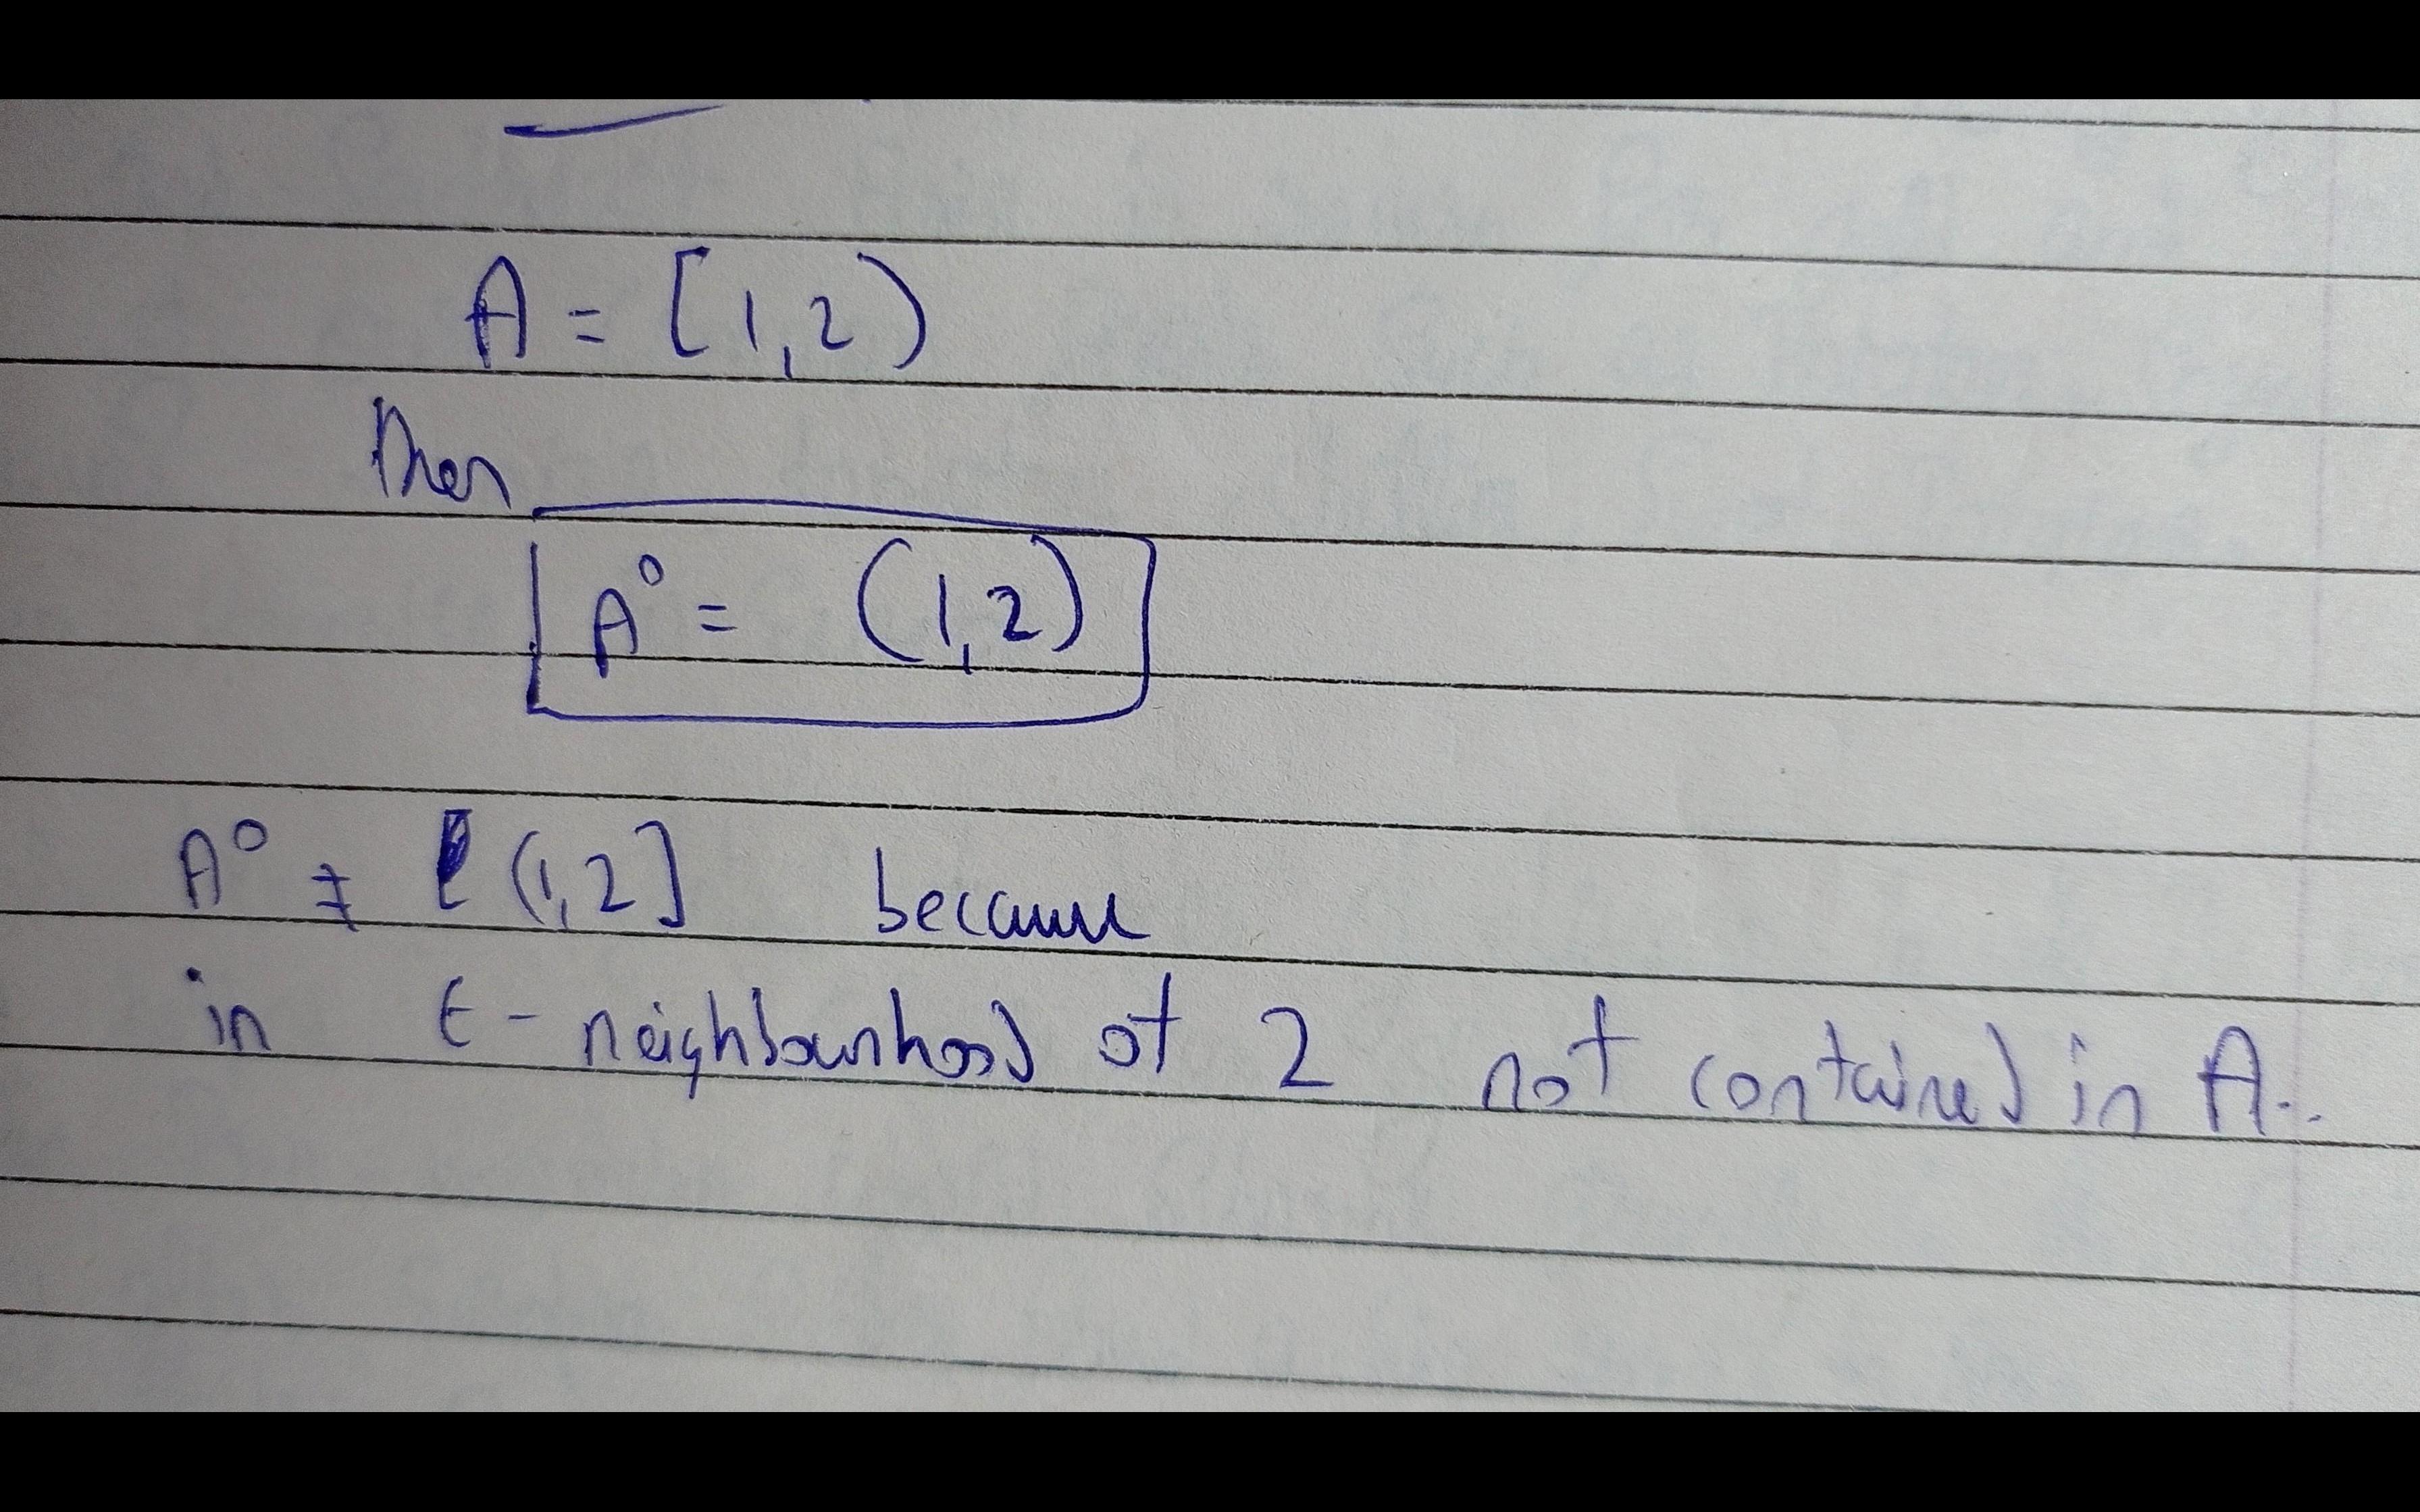 A = [1,2)
then
A° = (1,2)
A° ≠ (1,2] because
in ε-neighbourhood of 2 not contained in A..